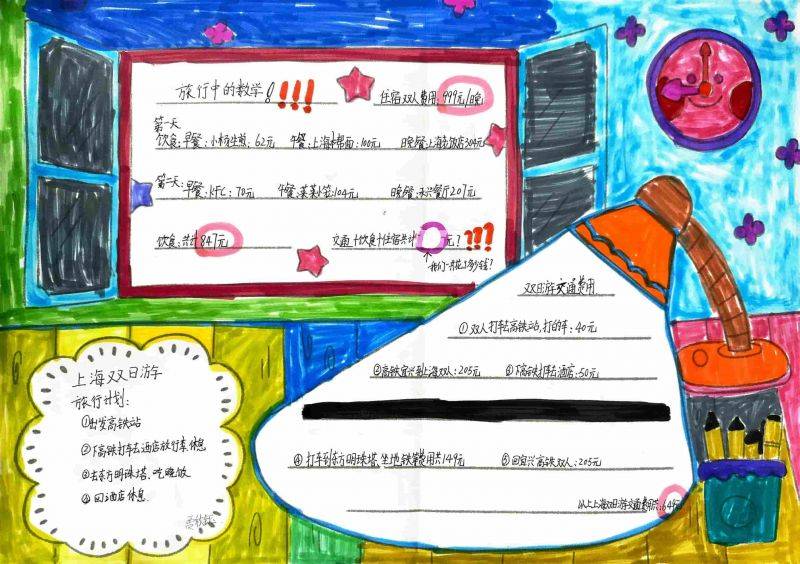 旅行中的数学!!!!
住宿双人费用:999元/晚
第一天
饮食:早餐:小杨生煎:62元 午餐:上海本帮面:100元 晚餐:上海老饭店304元
第二天:早餐:KFC:70元 午餐:莱莱小笼:104元 晚餐:禾兴餐厅207元
饮食:共计847元 交通+饮食+住宿共计 元?!!!
我们一共花了多少钱?
双日游交通费用
①双人打车去高铁站,打的车:40元
②高铁宜兴到上海双人:205元 ③下高铁打车去酒店:50元
④打车到东方明珠塔、坐地铁等费用共149元 ⑤回宜兴高铁双人:205元
以上上海双日游交通费用共:649元
上海双日游
旅行计划:
①出发高铁站
②下高铁打车去酒店放行李休息
③去东方明珠塔、吃晚饭
④回酒店休息